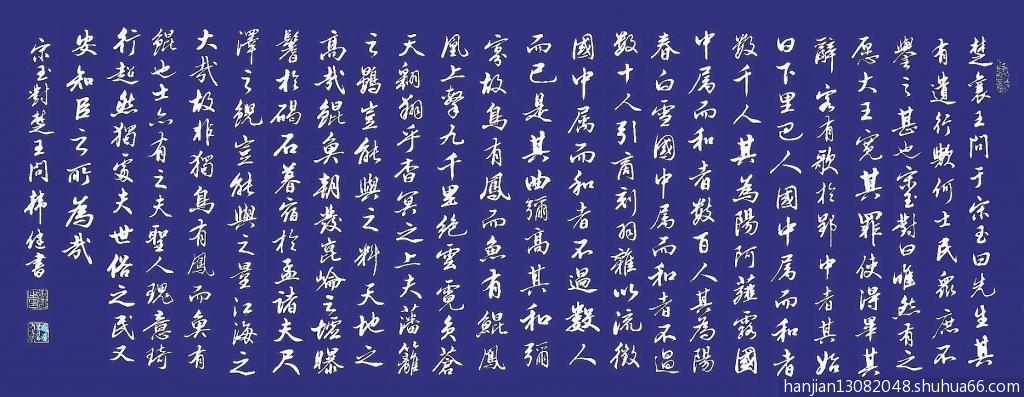 楚襄王問于宋玉曰先生其
有遺行歟何士民眾庶不
譽之甚也宋玉對曰唯然有之
愿大王寬其罪使得畢其
辭客有歌於郢中者其始
曰下里巴人國中属而和者
數千人其為陽阿薤露國
中属而和者數百人其為陽
春白雪國中属而和者不過
數十人引商刻羽雜以流徵
國中属而和者不過數人
而已是其曲彌高其和彌
寡故鳥有鳳而魚有鯤鳳
凰上擊九千里絕雲霓負蒼
天翱翔乎杳冥之上夫藩籬
之鷃豈能與之料天地之
高哉鯤魚朝發崑崙之墟曝
鬐於碣石暮宿於孟諸夫尺
澤之鯢豈能與之量江海之
大哉故非獨鳥有鳳而魚有
鯤也士亦有之夫聖人瑰意琦
行超然獨處夫世俗之民又
安知臣之所為哉
宋玉對楚王問 韩書
hanjian13082048.shuhua66.com